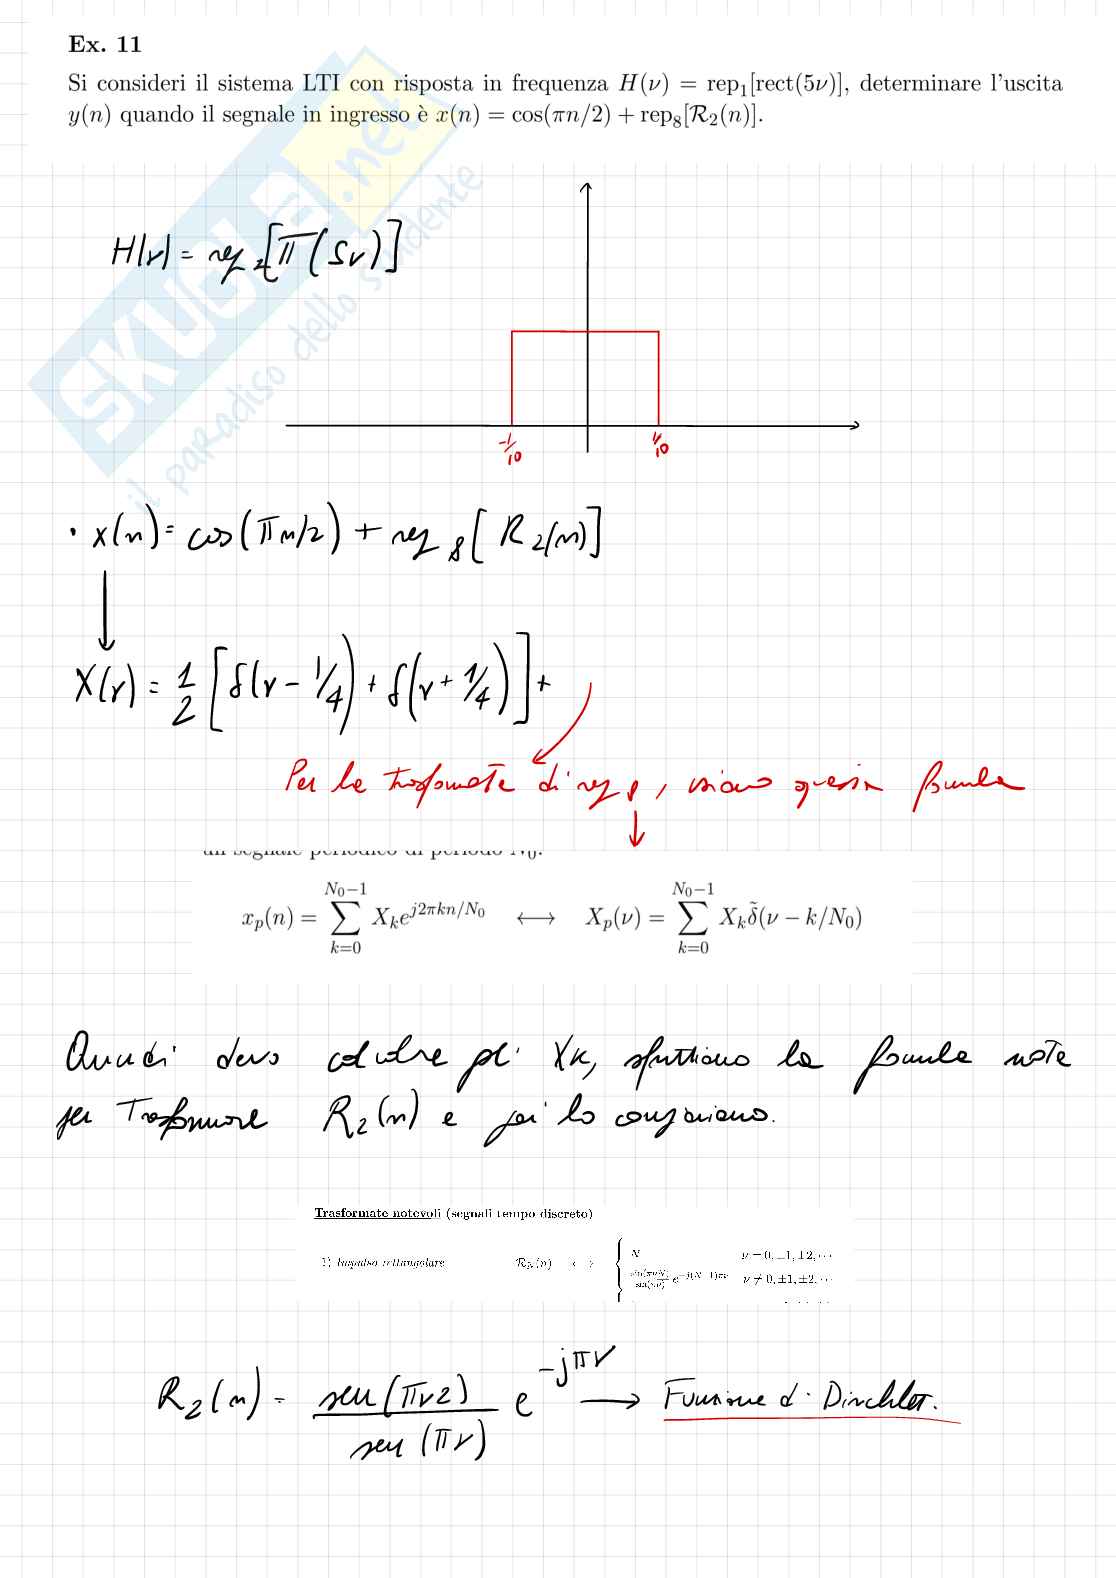 Ex. 11
Si consideri il sistema LTI con risposta in frequenza H(ν) = rep₁[rect(5ν)], determinare l'uscita
y(n) quando il segnale in ingresso è x(n) = cos(πn/2) + rep₈[R₂(n)].
SKUOLA.net
il paradiso dello studente
H(ν) = rep₁[Π(5ν)]
-1/10 1/10
• x(n) = cos(πn/2) + rep₈[R₂(n)]
X(ν) = 1/2 [δ(ν - 1/4) + δ(ν + 1/4)] +
Per la trasformata di rep₈, usiamo questa formula
un segnale periodico di periodo N₀.
x_p(n) = ∑_{k=0}^{N₀−1} X_k e^{j2πkn/N₀} ⟷ X_p(ν) = ∑_{k=0}^{N₀−1} X_k δ̃(ν − k/N₀)
Quindi devo calcolare gli Xk, sfruttiamo la formula nota
per trasformare R₂(n) e poi lo campioniamo.
Trasformate notevoli (segnali tempo discreto)
1) Impulso rettangolare R_N(n) ⟷ { N ν = 0, ±1, ±2, ⋯
sin(πνN)/sin(πν) e^{−j(N−1)πν} ν ≠ 0, ±1, ±2, ⋯
R₂(n) = sen(πν2)/sen(πν) e^{-jπν} → Funzione di Dirichlet.